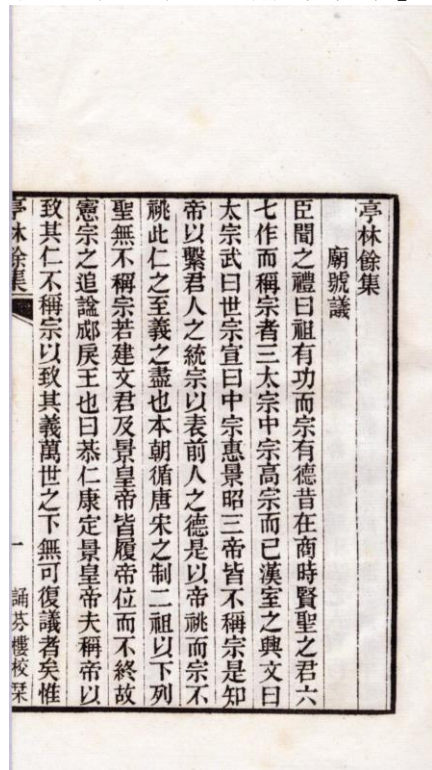 亭林餘集
廟號議
臣聞之禮曰祖有功而宗有德昔在商時賢聖之君六
七作而稱宗者三太宗中宗高宗而已漢室之興文曰
太宗武曰世宗宣曰中宗惠景昭三帝皆不稱宗是知
帝以繫君人之統宗以表前人之德是以帝祧而宗不
祧此仁之至義之盡也本朝循唐宋之制二祖以下列
聖無不稱宗若建文君及景皇帝皆履帝位而不終故
憲宗之追諡郕戾王也曰恭仁康定景皇帝夫稱帝以
致其仁不稱宗以致其義萬世之下無可復議者矣惟
亭林餘集
一
誦芬樓校栞